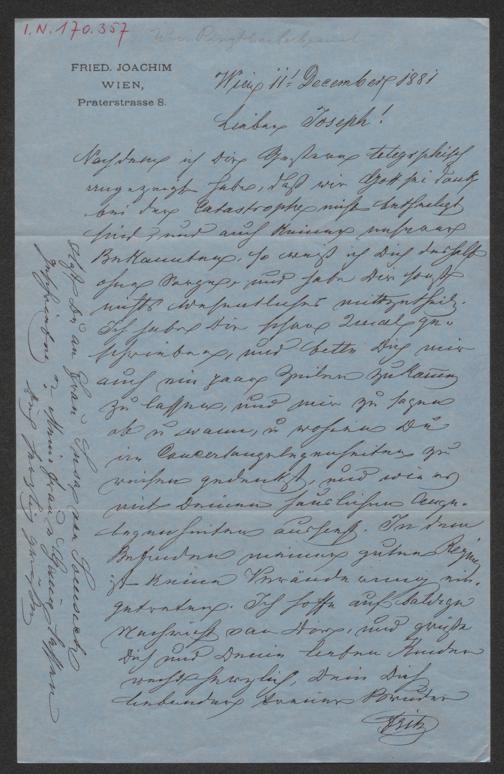 I.N. 170.357
FRIED. JOACHIM
WIEN,
Praterstrasse 8.
Wien 11! December 1881
Lieber Joseph!
Nachdem ich Dir Gestern telegraphisch
angezeigt habe, daß wir Gott sei Dank
bei der Catastrophe nicht betheiligt
sind, und auch Keiner unserer
Bekannten, so weiß ich Dich deshalb
ohne Sorge, und habe Dir sonst
nichts wesentliches mitzutheilen.
Ich habe Dir schon 2mal ge-
schrieben, und bitte Dich mir
auch ein paar Zeilen zukommen
zu lassen, und mir zu sagen
ob u wann, u wohin Du
in Concertangelegenheiten zu
reisen gedenkst, und wie es
mit Deinen häuslichen Ange-
legenheiten aussieht. In dem
Befinden meiner guten Regine
ist keine Veränderung ein-
getreten. Ich hoffe auf baldige
Nachricht von Dir, und grüße
Dich und Deine lieben Kinder
recht herzlich. Dein Dich
liebender treuer Bruder
Fritz
Du an Frau
geschrieben,
Meine Frau u lassen
Dich herzlich grüßen